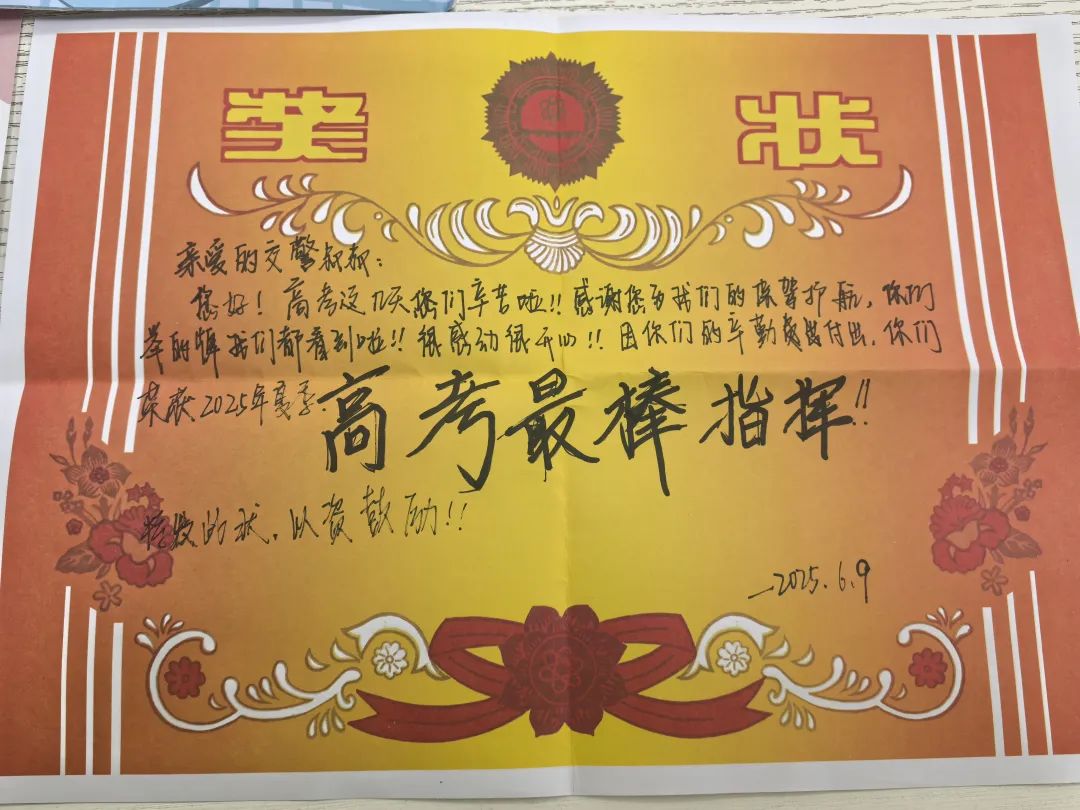 奖状
亲爱的交警叔叔：
您好！高考这几天您们辛苦啦!!感谢您为我们的保驾护航，你们
举的牌我们都看到啦!!很感动很开心!!因你们的辛勤付出，你们
荣获2025年夏季
高考最棒指挥!!
特发的状，以资鼓励!!
—2025.6.9